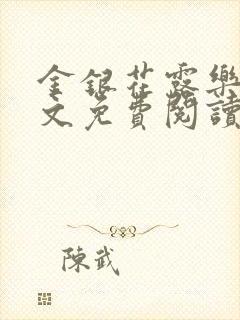 金銀花露樂
文免費閱讀
陳武